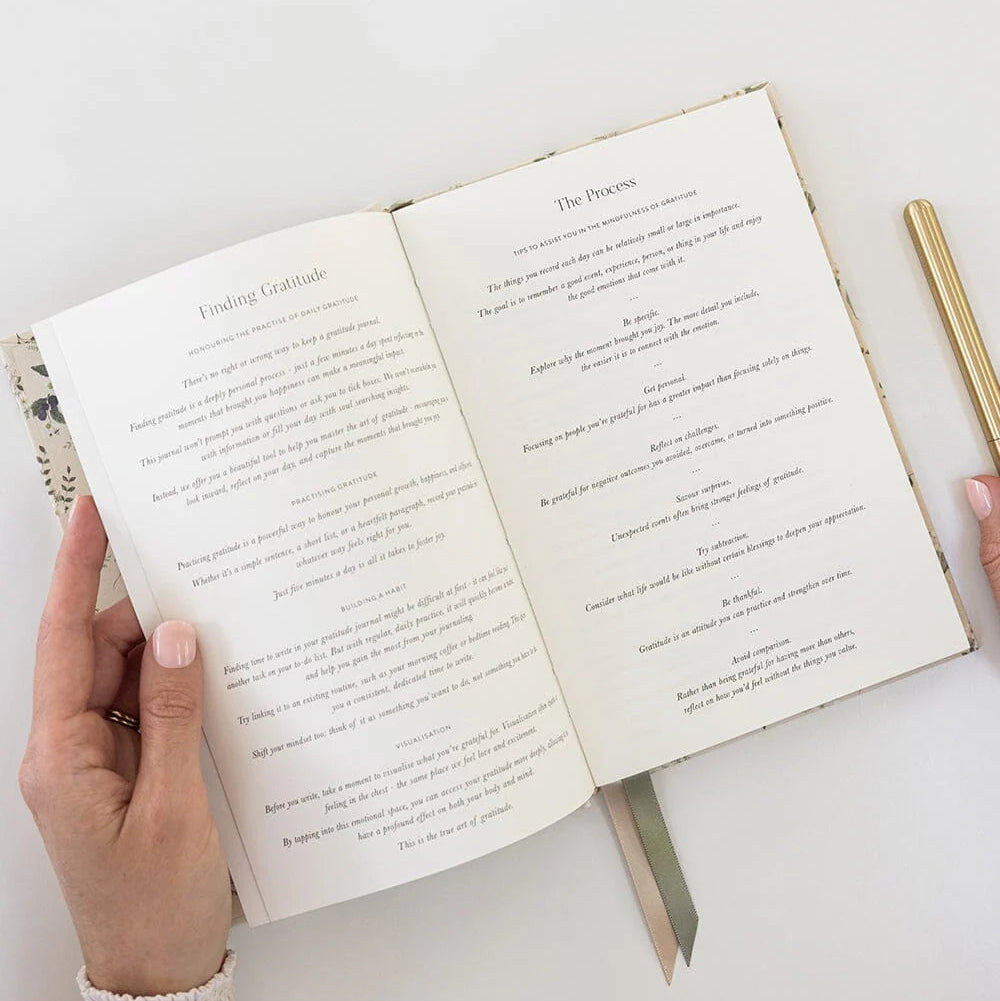 Finding Gratitude
HONOURING THE PRACTISE OF DAILY GRATITUDE
There's no right or wrong way to keep a gratitude journal.
Finding gratitude is a deeply personal process - just a few minutes a day spent reflecting on the
moments that brought you happiness can make a meaningful impact.
This journal won't prompt you with questions or ask you to tick boxes. We won't overwhelm you
with information or fill your day with soul searching insights.
Instead, we offer you a beautiful tool to help you master the art of gratitude - encouraging you
look inward, reflect on your day, and capture the moments that brought you joy.
PRACTISING GRATITUDE
Practicing gratitude is a powerful way to honour your personal growth, happiness, and
Whether it's a simple sentence, a short list, or a heartfelt paragraph, record your gratitude in
whatever way feels right for you.
Just five minutes a day is all it takes to foster joy.
BUILDING A HABIT
Finding time to write in your gratitude journal might be difficult at first - it can feel like
another task on your to-do list. But with regular, daily practice, it will quickly become a
and help you gain the most from your journaling
Try linking it to an existing routine, such as your morning coffee or bedtime reading. This
you a consistent, dedicated time to write.
Shift your mindset too: think of it as something you want to do, not something you
VISUALISATION
Before you write, take a moment to visualise what you're grateful for. Visualisation often
feeling in the chest - the same place we feel love and excitement.
By tapping into this emotional space, you can access your gratitude more deeply, allowing it
have a profound effect on both your body and mind.
This is the true art of gratitude.
The Process
TIPS TO ASSIST YOU IN THE MINDFULNESS OF GRATITUDE
The things you record each day can be relatively small or large in importance.
The goal is to remember a good event, experience, person, or thing in your life and enjoy
the good emotions that come with it.
...
Be specific.
Explore why the moment brought you joy. The more detail you include,
the easier it is to connect with the emotion.
...
Get personal.
Focusing on people you're grateful for has a greater impact than focusing solely on things.
...
Reflect on challenges.
Be grateful for negative outcomes you avoided, overcame, or turned into something positive.
...
Savour surprises.
Unexpected events often bring stronger feelings of gratitude.
...
Try subtraction.
Consider what life would be like without certain blessings to deepen your appreciation.
...
Be thankful.
Gratitude is an attitude you can practice and strengthen over time.
...
Avoid comparison.
Rather than being grateful for having more than others,
reflect on how you'd feel without the things you value.